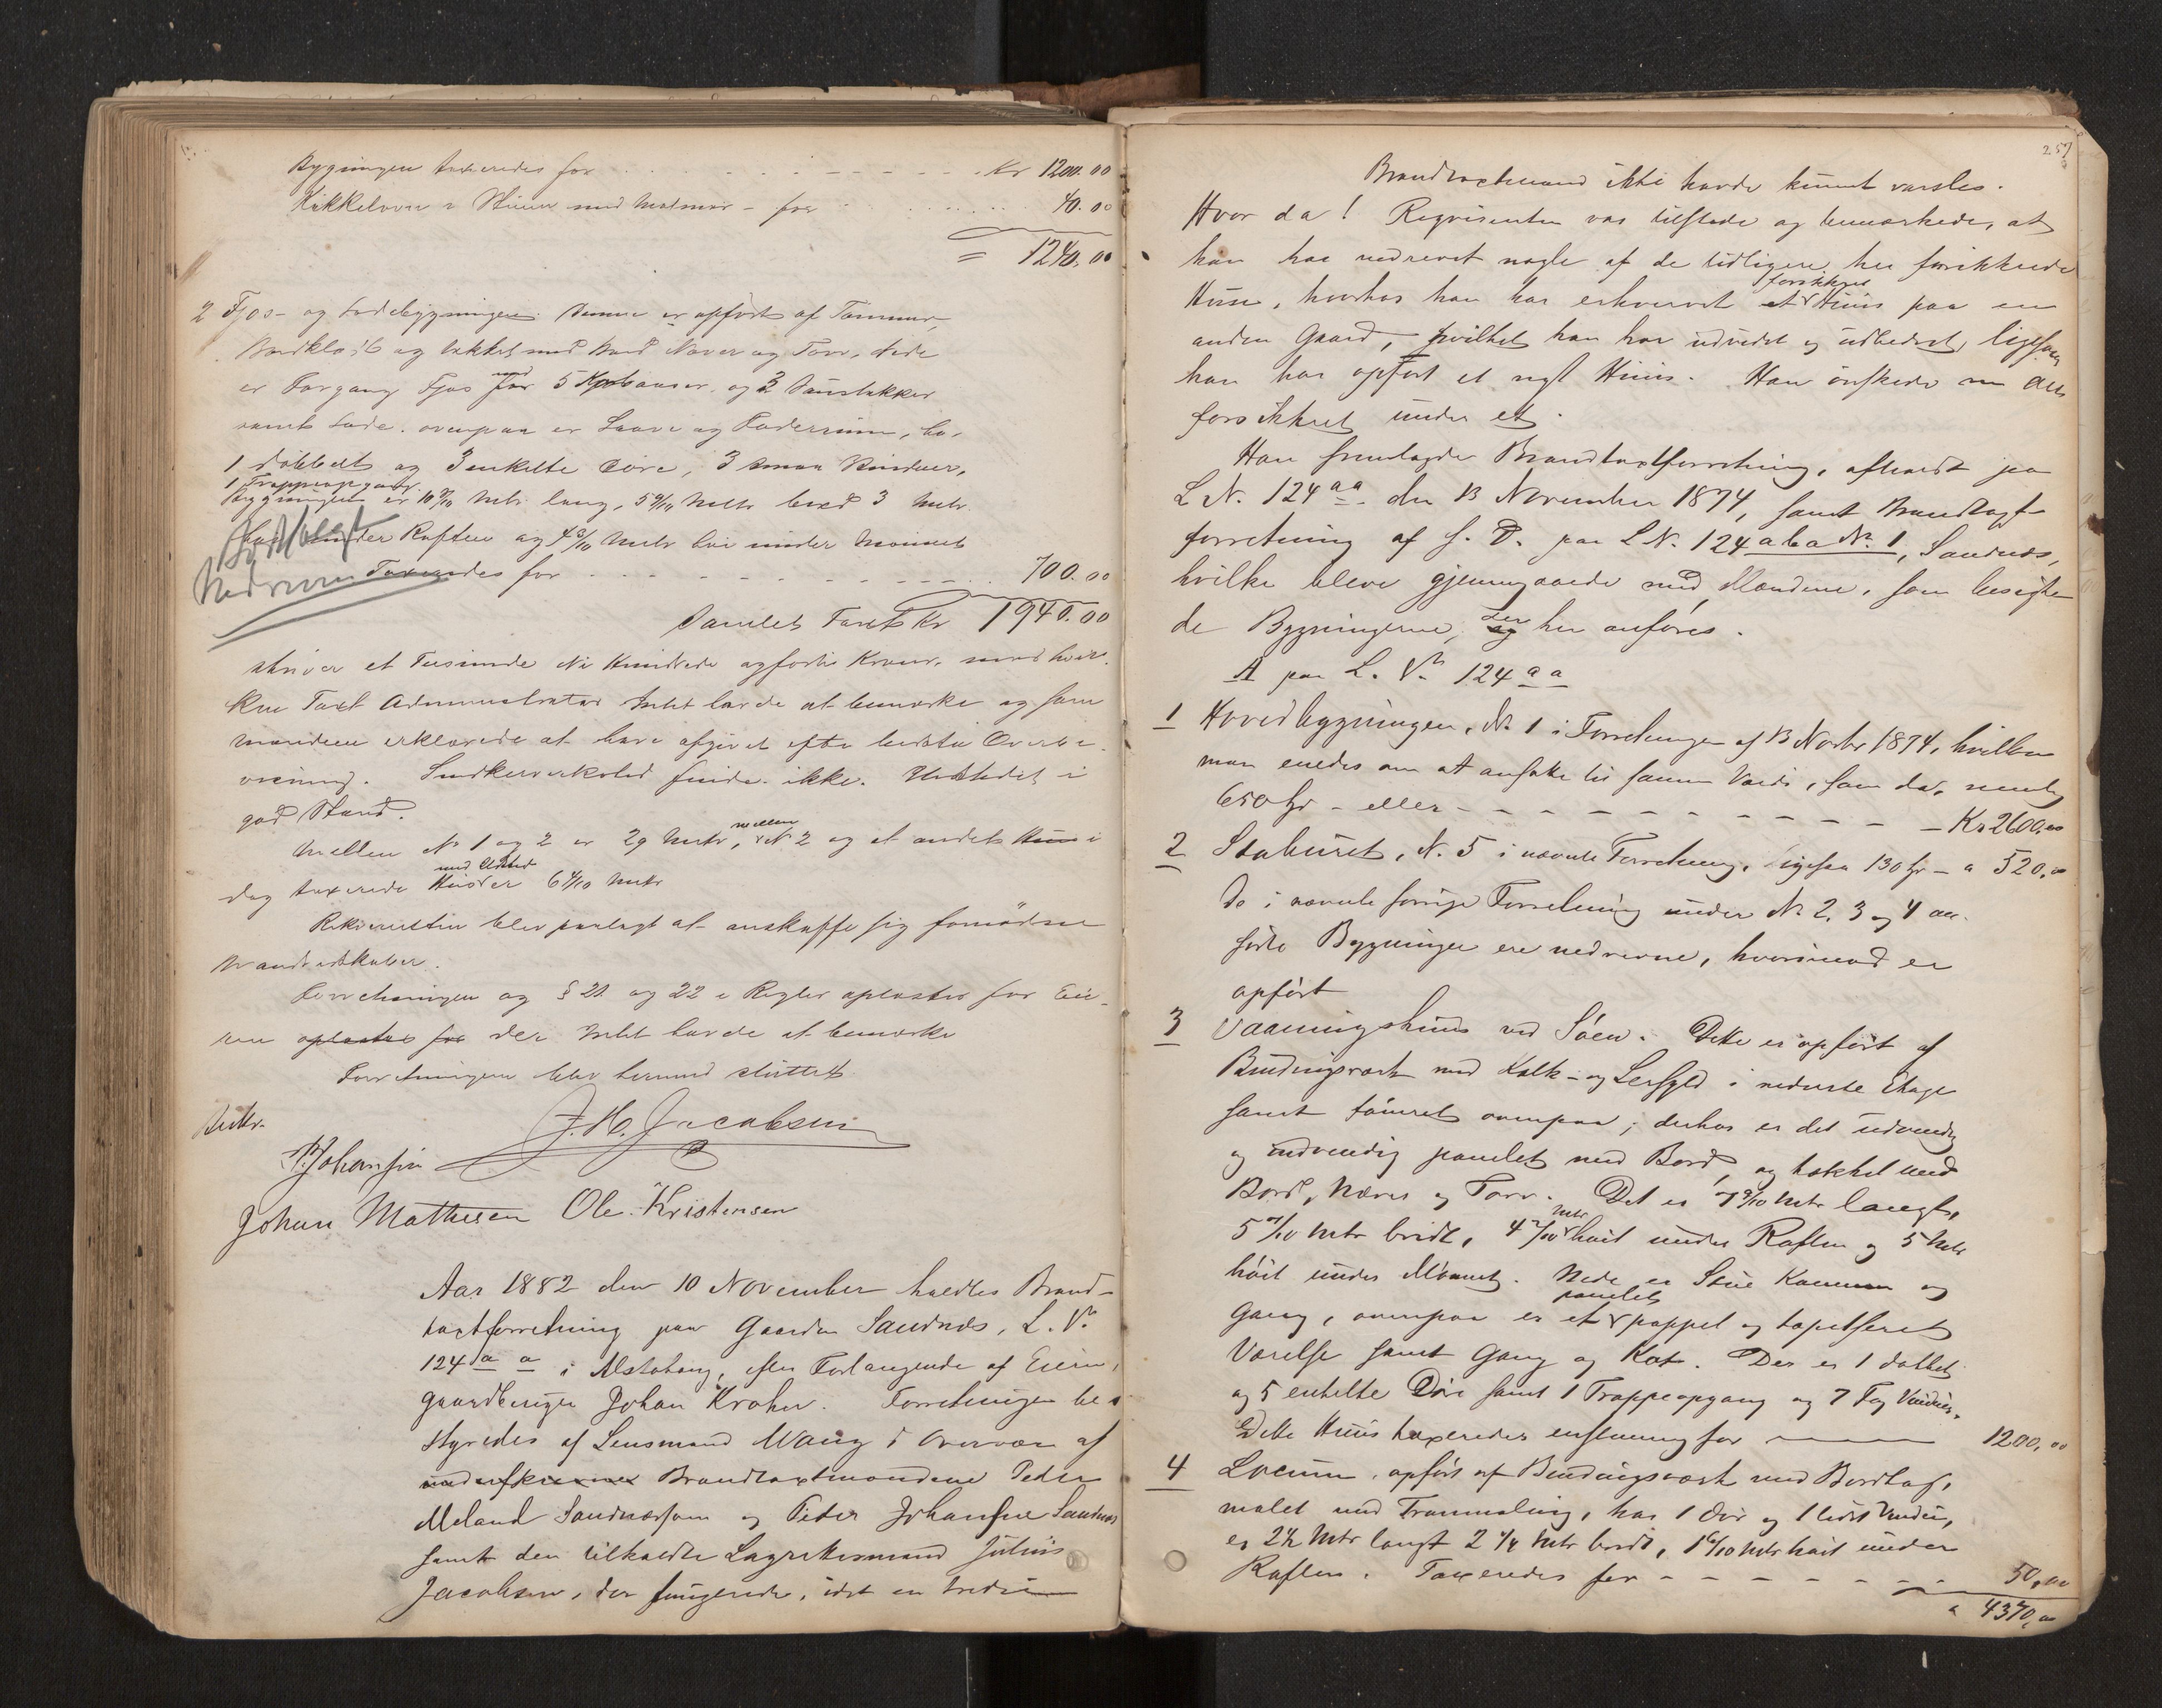 Bygningen taxeredes for - - - - - - Kr 1200.00
Kakkelovn i Stuen med Malmrør - for 40.00
= 1240.00
2 Fjos- og Ladebygningen. Denne er opført af Tømmer,
Bordklædt og takket med Bord Næver og Torv, Nede
er Forgang Fjos med for 5 og 3
samt Lade. ovenpaa er Laave og Foderrum, har
1 dobbelt og 3 enkelte Døre, 3 smaa Vinduer,
1 Trappeopgang.
Bygningen er 10 Metr lang, 5 Metr bred 3 Metr
høi under Raften og 4 3/10 Metr høi under Mønnet
Bortsolgt
Nedreven
Taxeredes for - - - - - - 700.00
Samlet Taxt Kr 1940.00
skriver et Tusinde Ni Hundrede og forti Kroner, mod hvil-
ken Taxt Administrator Intet havde at bemærke og som
Mændene erklærede at have afgivet efter bedste Overbe-
visning. Snedkerværksted findes ikke. Ildstedet i
god Stand.
Mellem No 1 og 2 er 29 Metr, mellem No 2 og et andet Huus i
dag taxerede Huus med Ildsted er 6 4/10 Metr
Rekvirenten blev paalagt at anskaffe sig fornødne
Brandredskaber.
Forretningen og § 21 og 22 i Regler oplæstes for Eie-
ren oplæstes for der Intet havde at bemærke
Forretningen blev hermed sluttet.
J. H. Jacobsen
P. Johansen
Johan Mathisen Ole Kristensen
Aar 1882 den 10 November holdtes Brand-
taxtforretning paa Gaarden Sandnes, L. No
124 a a i Alstahoug, efter Forlangende af Eieren,
Gaardbruger Johan Krohn. Forretningen be-
styredes af Lensmand Wang i Overvær af
underskrevne Brandtaxtmændene Peder
Meland Sandnæsjøen og Peder Johansen Sandnes
samt den tilkaldte Lagrettesmand Julius
Jacobsen, der fungerede, idet en tredie
257
Brandtaxtmand ikke havde kunnet varsles.
Hvor da! Reqvirenten var tilstede og bemærkede, at
han har nedrevet nogle af de tidligere her forsikkrede
Huse, hvorhos han har erhvervet et forsikkret Huus paa en
anden Gaard, hvilket han har udvidet og udbedret, ligesom
han har opført et nyt Huus. Han ønskede nu Alt
forsikkret under et.
Han fremlagde Brandtaxtforretning, afholdt paa
L No. 124 aa den 13 November 1874, samt Brandtaxt-
forretning af s. D. paa L No. 124 aba No. 1, Sandnes,
hvilke bleve gjennemgaaede med Mændene, som besigte-
de Bygningerne, der her anføres.
A paa L. No 124 a a
1 Hovedbygningen, No 1 i Forretningen af 13 Novbr 1874, hvilken
man enedes om at ansætte til samme Værdi, som da, nemlig
650 Spd - eller - - - - - - Kr 2600,00
2 Staburet, No. 5 i nævnte Forretning, ligesaa 130 Spd - a 520,00
De i nævnte forrige Forretning under No 2, 3 og 4 an-
førte Bygninger ere nedrevne, hvorimod er
opført
3 Vaaningshuus ved Søen. Dette er opført af
Bindingsværk med Kalk- og Leerfyld i nederste Etage
samt tømret ovenpaa; derhos er det udvendig
og indvendig panelet med Bord, og takket med
Bord, Næver og Torv. Det er 7 9/10 Metr langt,
5 /10 Metr bredt, 4 /10 Metr høit under Raften og 5 Metr
høit under Mønnet. Nede er Stue Kammer og
Gang, ovenpaa er et panelet pappet og tapetseret
Værelse samt Gang og Kot. Der er 1 dobbelt
og 5 enkelte Døre samt 1 Trappeopgang og 7 Fag Vinduer.
Dette Huus taxeredes enstemmig for 1200,00
4 Locum, opført af Bindingsværk med Bordtag,
malet med Tranmaling, har 1 Dør og 1 lidet Vindu,
er 2 1/2 Metr langt 2 1/4 Metr bredt, 1 6/10 Metr høit under
Raften. Taxeredes for - - - - - - 50,00
a 4370,00